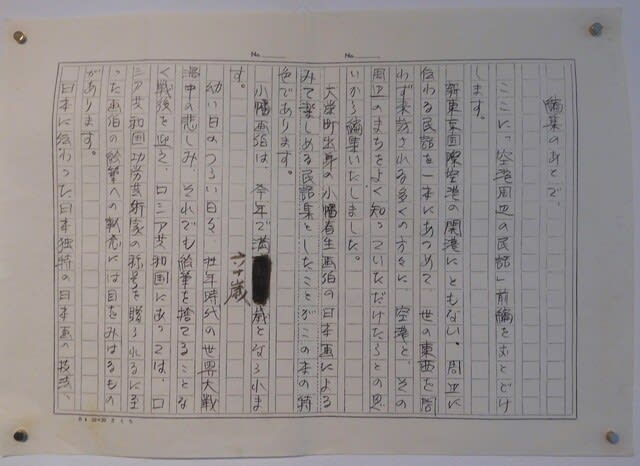 No.
No.
編集のあとで、
ここに「空港周辺の民話」前編をおとどけ
します。
新東京国際空港の開港にともない、周辺に
伝わる民話を一本にあつめて、世の東西を問
わず来訪される多くの方々に、空港と、その
周辺のまちをよく知っていただけたらとの思
いから編集いたしました。
大栄町出身の小幡有生画伯の日本画による
みて楽しめる民話集としたことがこの本の特
色であります。
小幡画伯は、今年で満 歳となられま
六十歳
す。
幼い日のつらい日々、壮年時代の世界大戦
渦中の悲しみ、それでも絵筆を捨てることな
く戦後を迎え、ロシア共和国にあっては、ロ
シア共和国功労芸術家の称号を贈られるに至
った画伯の絵筆への執念には目をみはるもの
があります。
日本に伝わった日本独特の日本画の技法、